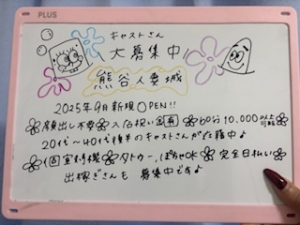 PLUS
キャストさん
大募集中
熊谷人妻城
2025年9月新規OPEN!!
顔出し不要 入店祝い金有 60分10,000以上可能
20代~40代後半のキャストさんが在籍中♪
個室待機 タトゥー、ぽちゃOK 完全日払い
出稼ぎさんも募集中です♪